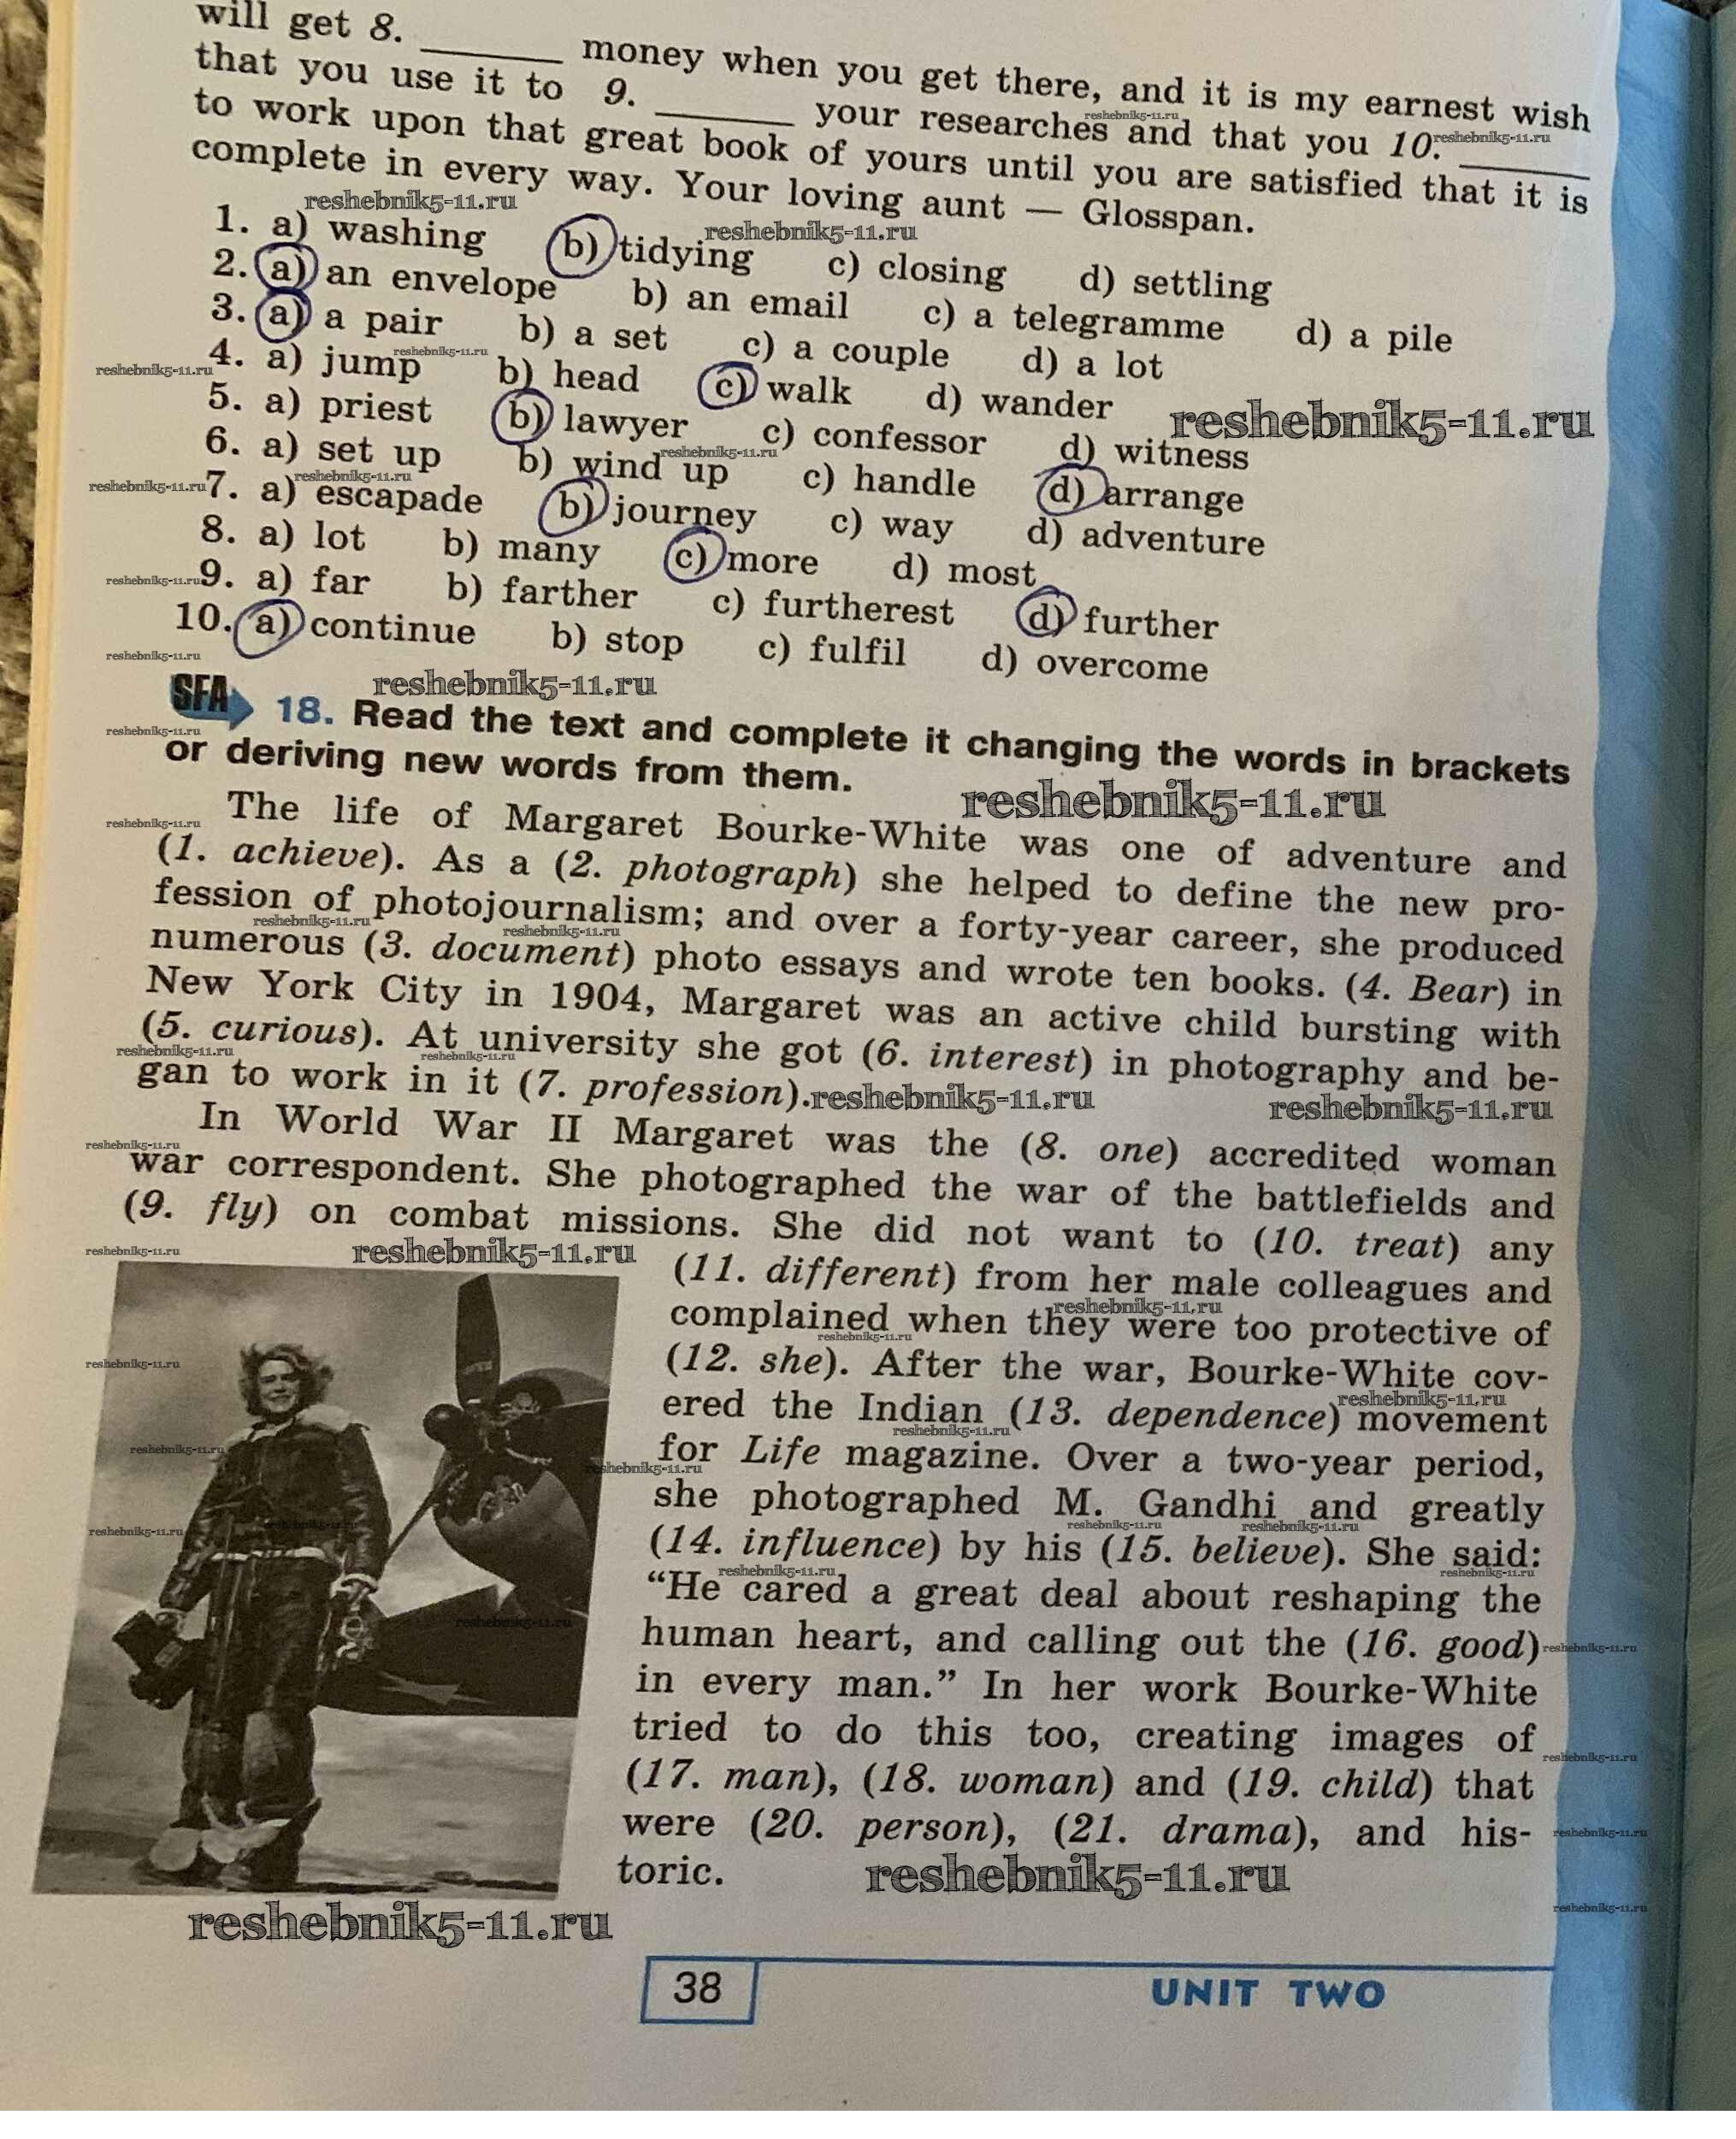 will get 8. ______ money when you get there, and it is my earnest wish
that you use it to 9. ______ your researches and that you 10. ______
to work upon that great book of yours until you are satisfied that it is
complete in every way. Your loving aunt — Glosspan.
1. a) washing b) tidying c) closing d) settling
2. a) an envelope b) an email c) a telegramme d) a pile
3. a) a pair b) a set c) a couple d) a lot
4. a) jump b) head c) walk d) wander
5. a) priest b) lawyer c) confessor d) witness
6. a) set up b) wind up c) handle d) arrange
7. a) escapade b) journey c) way d) adventure
8. a) lot b) many c) more d) most
9. a) far b) farther c) furtherest d) further
10. a) continue b) stop c) fulfil d) overcome
SFA 18. Read the text and complete it changing the words in brackets
or deriving new words from them.
The life of Margaret Bourke-White was one of adventure and
(1. achieve). As a (2. photograph) she helped to define the new pro-
fession of photojournalism; and over a forty-year career, she produced
numerous (3. document) photo essays and wrote ten books. (4. Bear) in
New York City in 1904, Margaret was an active child bursting with
(5. curious). At university she got (6. interest) in photography and be-
gan to work in it (7. profession).
In World War II Margaret was the (8. one) accredited woman
war correspondent. She photographed the war of the battlefields and
(9. fly) on combat missions. She did not want to (10. treat) any
(11. different) from her male colleagues and
complained when they were too protective of
(12. she). After the war, Bourke-White cov-
ered the Indian (13. dependence) movement
for Life magazine. Over a two-year period,
she photographed M. Gandhi and greatly
(14. influence) by his (15. believe). She said:
“He cared a great deal about reshaping the
human heart, and calling out the (16. good)
in every man.” In her work Bourke-White
tried to do this too, creating images of
(17. man), (18. woman) and (19. child) that
were (20. person), (21. drama), and his-
toric.
reshebnik5-11.ru
38
UNIT TWO